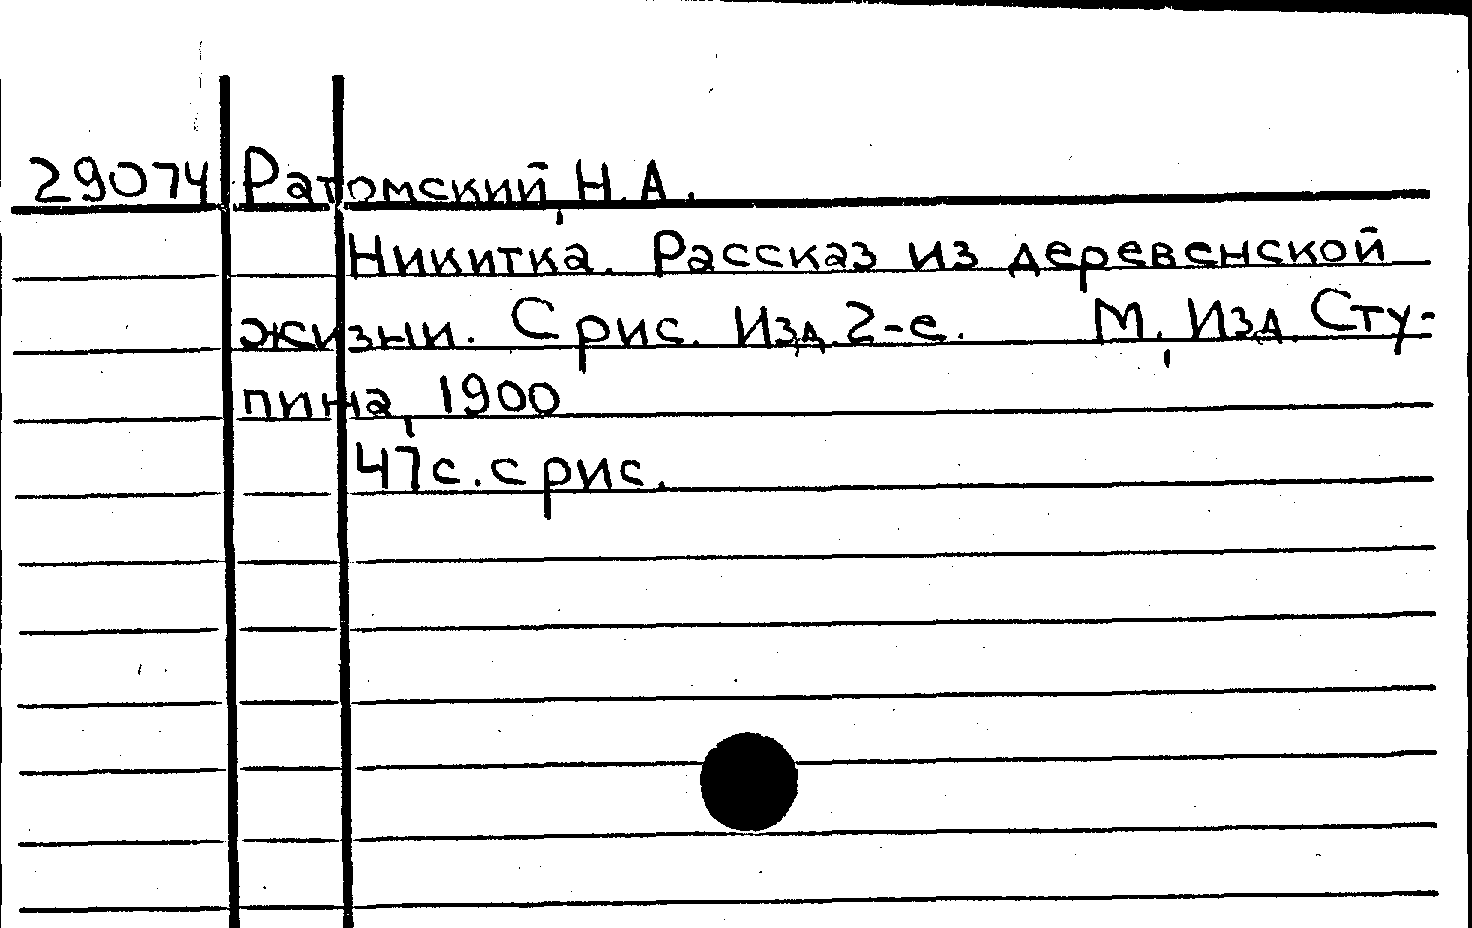 29074 Ратомский, Н.А.
Никитка. Рассказ из деревенской
жизни. С рис. Изд. 2-е. М., Изд. Сту-
пина, 1900
47с. с рис.